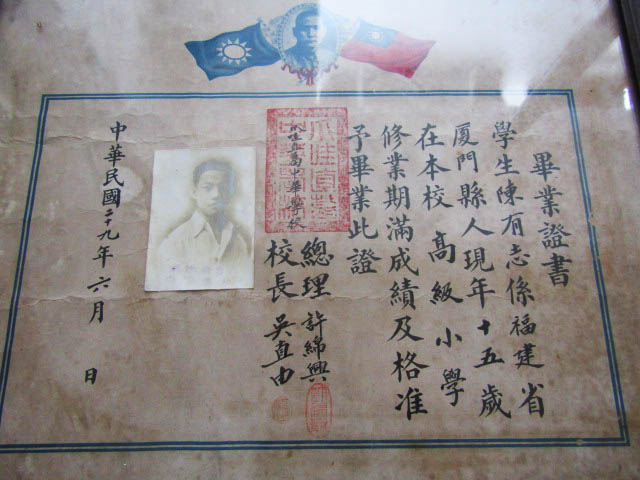 畢業證書
學生陳有志係福建省
廈門縣人現年十五歲
在本校高級小學
修業期滿成績及格准
予畢業此證
中華學校
總理許綿興
校長吳直由
中華民國二十九年六月 日